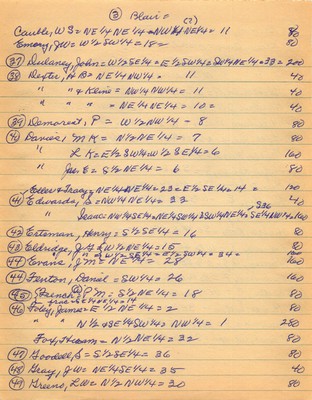 ③ Blair
(?)
Caulk, W S = NE¼ NE¼ = NW¼ NE¼ = 11 80
Emory, JW = W½ SW¼ = 12 = 80
㊲ Dulaney, John = W½ SE¼ = E½ SW¼ = SW¼ NE¼ = 33 = 200
㊳ Dexter, A B = NE¼ NW¼ = 11 40
" " & Kline = NW¼ NW¼ = 11 40
" " " = NE¼ NE¼ = 10 = 40
㊴ Demorest, P = W½ NW¼ = 8 80
㊵ Davis, M K = N½ NE¼ = 7 80
L K = E½ SW¼ W½ SE¼ = 6 160
Jas. E = S½ NE¼ = 6 80
Eller & Tracy = NE¼ NE¼ = 23 = E½ SE¼ = 14 = 120
㊶ Edwards, S = NW¼ NE¼ 33 40
Isaac = NW¼ SE¼ = NE¼ SW¼ = SE¼ NW¼ = 160
㊷ Eastman, Henry = S½ SE¼ = 16 80
㊸ Eldridge, J G = W½ NW¼ = 15 80
" = W½ SE¼ = E½ SW¼ = 34 =
㊹ Evans, J M = NE¼ = 28 160
㊹ Fenton, Daniel = SW¼ = 26 160
㊺ French, P M = S½ NE¼ = 18 80
㊻ Foley, James = E½ NE¼ = 2 80
" " N½ SE¼ SW¼ NW¼ = 1 280
Fox, Hiram = N½ NE¼ = 32 80
㊼ Goodell, S = S½ SE¼ = 36 80
㊽ Gray, J W = NE¼ SE¼ = 35 40
㊾ Greeno, L W = N½ NW¼ = 30 80